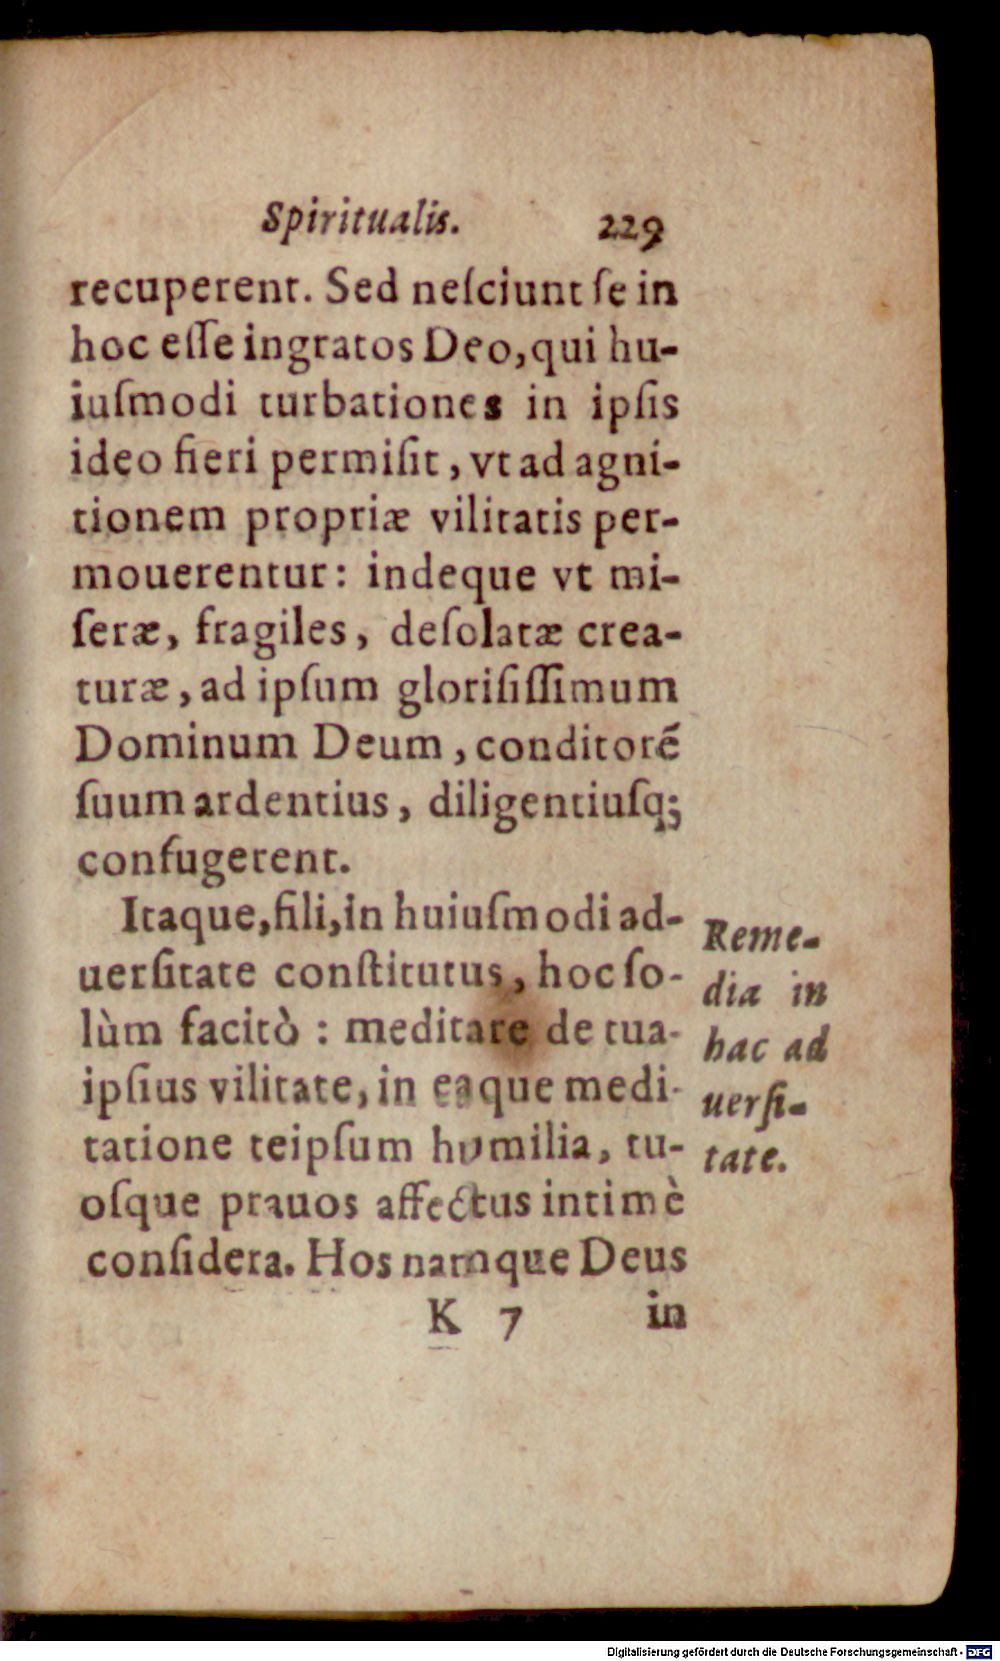 Spiritualis. 229
recuperent. Sed neſciunt ſe in
hoc eſſe ingratos Deo, qui hu-
iuſmodi turbationes in ipſis
ideo fieri permiſit, vt ad agni-
tionem propriæ vilitatis per-
mouerentur: indeque vt mi-
ſeræ, fragiles, deſolatæ crea-
turæ, ad ipſum gloriſiſſimum
Dominum Deum, conditoré
ſuum ardentius, diligentiuſq;
confugerent.
Itaque, fili, in huiuſmodi ad-
uerſitate conſtitutus, hoc ſo-
lùm facitò : meditare de tua-
ipſius vilitate, in eaque medi-
tatione teipſum humilia, tu-
oſque prauos affectus intimè
conſidera. Hos namque Deus
Reme-
dia in
hac ad
uerſi-
tate.
K 7 in
Digitalisierung gefördert durch die Deutsche Forschungsgemeinschaft - DFG